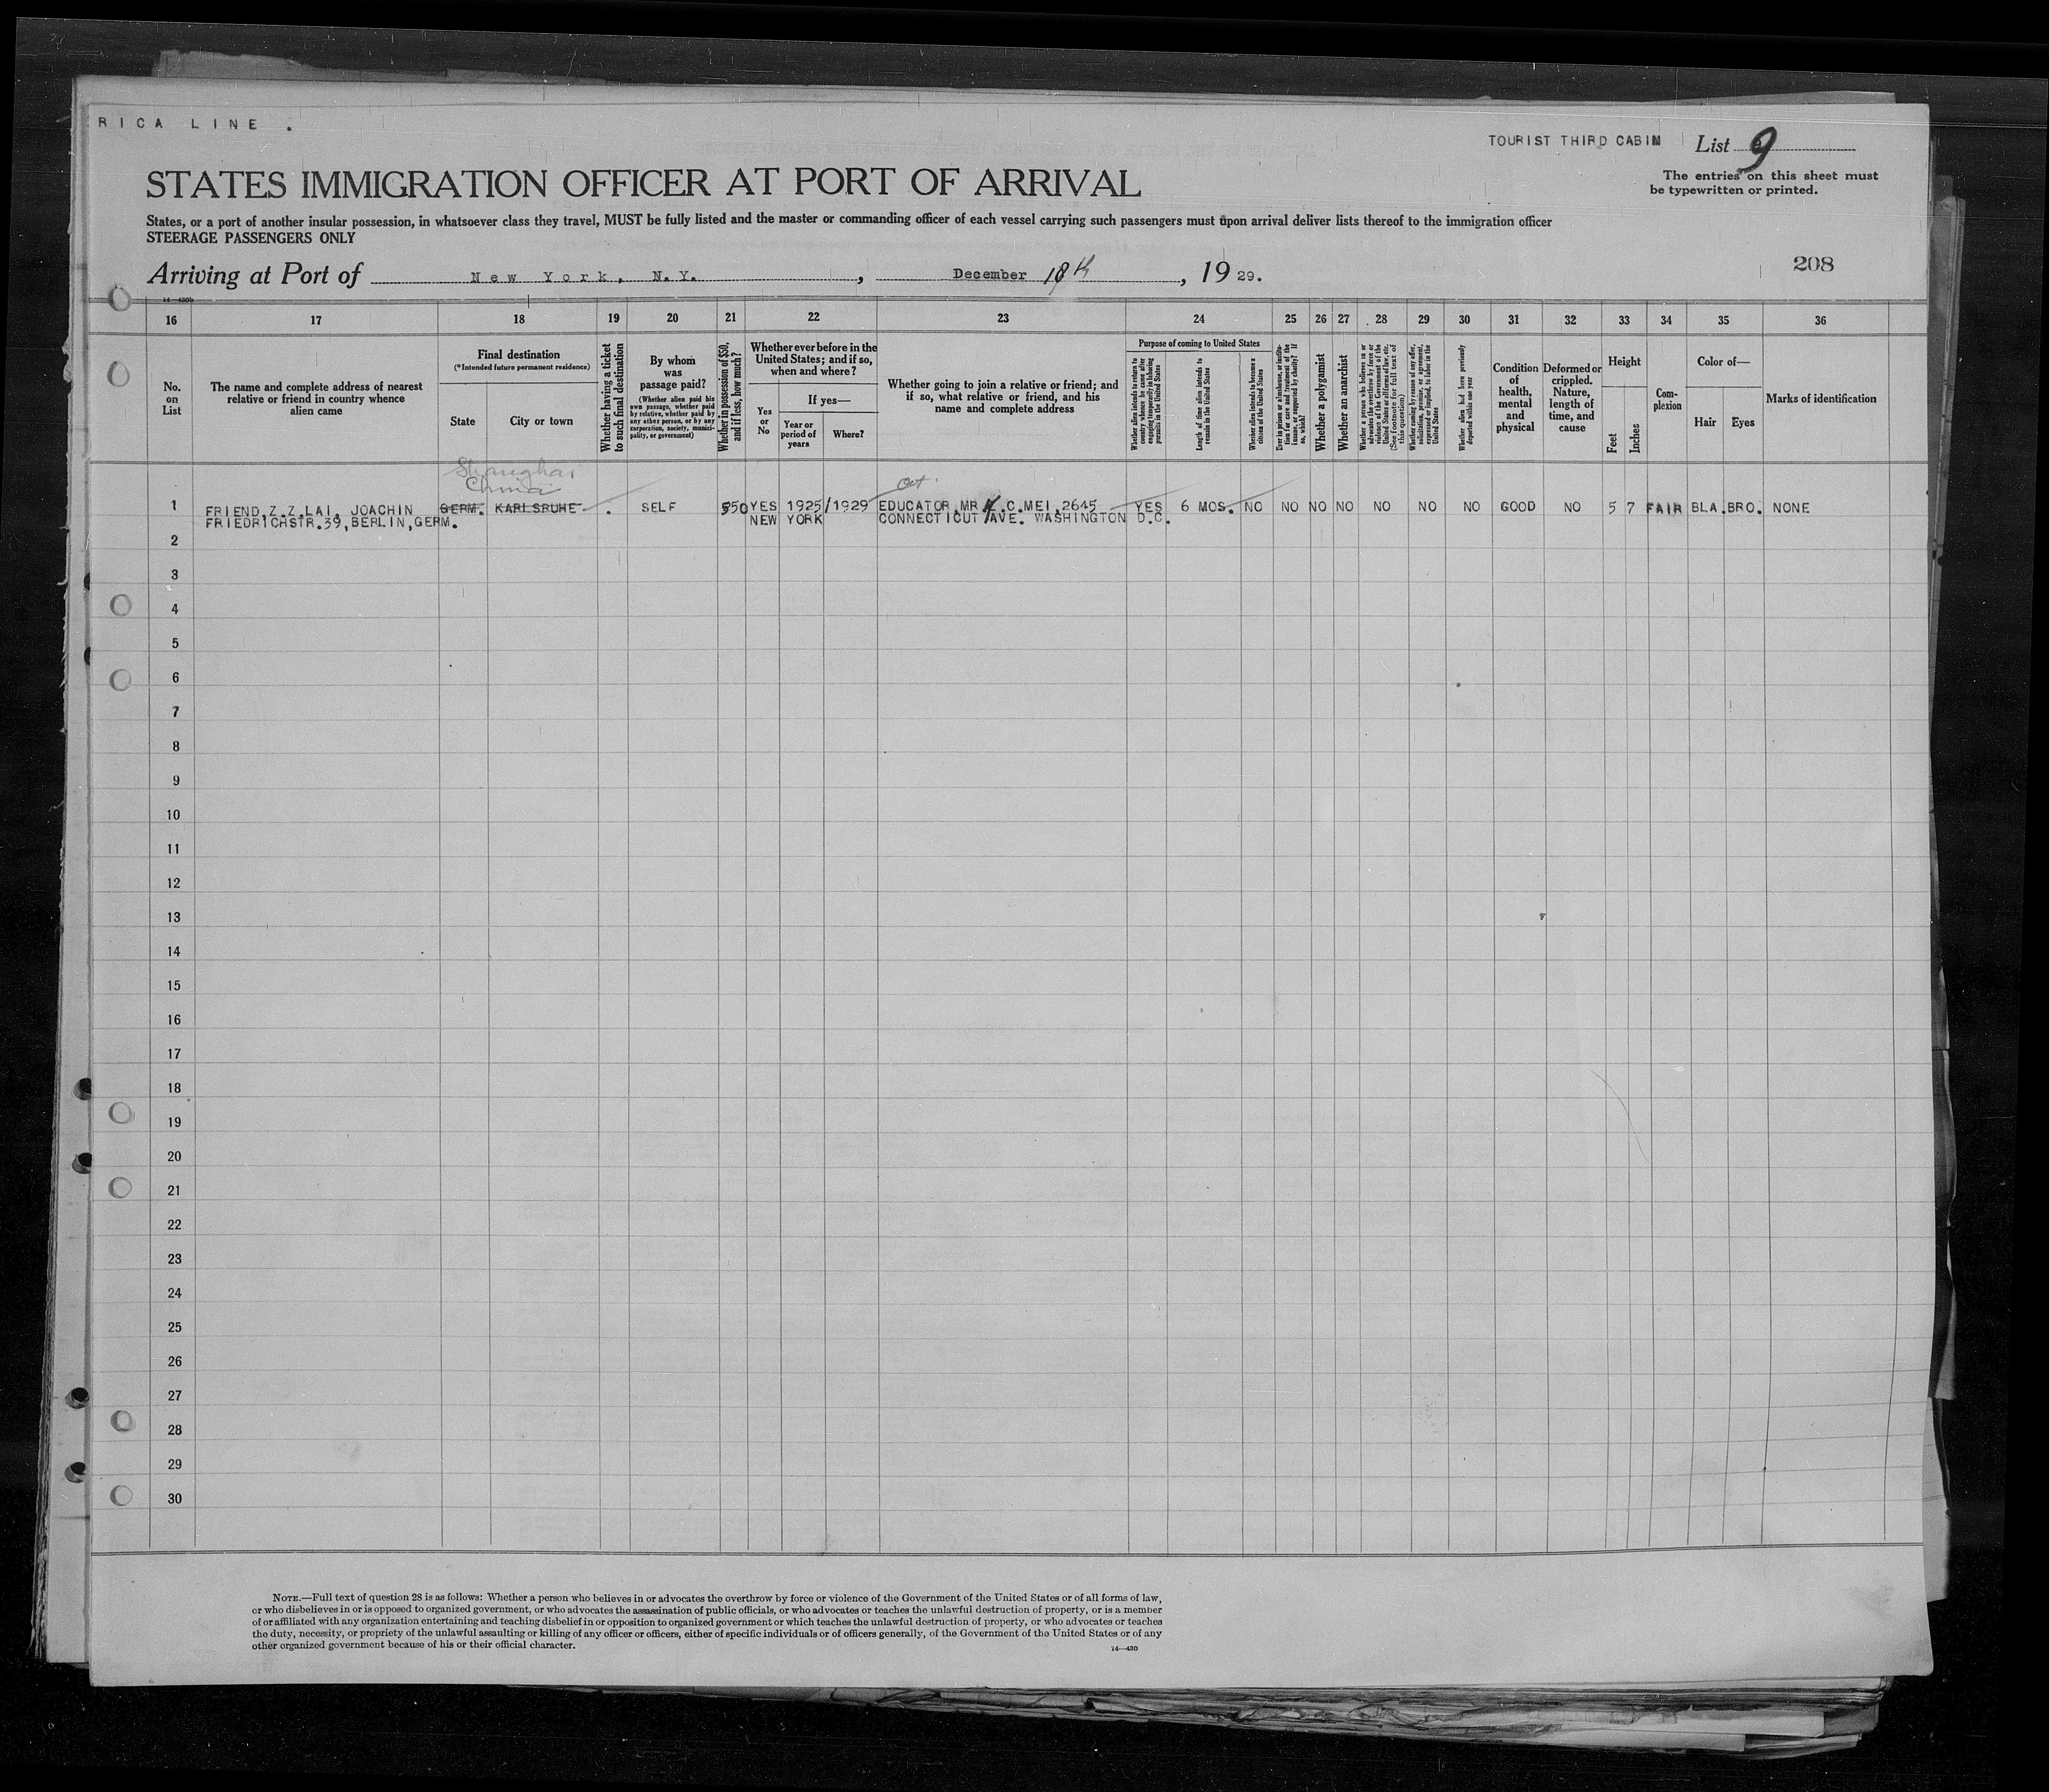 RICA LINE .
TOURIST THIRD CABIN List 9
STATES IMMIGRATION OFFICER AT PORT OF ARRIVAL
The entries on this sheet must
be typewritten or printed.
States, or a port of another insular possession, in whatsoever class they travel, MUST be fully listed and the master or commanding officer of each vessel carrying such passengers must upon arrival deliver lists thereof to the immigration officer
STEERAGE PASSENGERS ONLY
Arriving at Port of New York, N.Y. , December 18th , 19 29.
208
14—430b
16 17 18 19 20 21 22 23 24 25 26 27 28 29 30 31 32 33 34 35 36
No. on List
The name and complete address of nearest relative or friend in country whence alien came
Final destination
(*Intended future permanent residence)
State
City or town
Whether having a ticket to such final destination
By whom was passage paid?
(Whether alien paid his own passage, whether paid by relative, whether paid by any other person, or by any corporation, society, municipality, or government)
Whether in possession of $50, and if less, how much?
Whether ever before in the United States; and if so, when and where?
Yes or No
If yes—
Year or period of years
Where?
Whether going to join a relative or friend; and if so, what relative or friend, and his name and complete address
Purpose of coming to United States
Whether alien intends to return to country whence he came after engaging temporarily in laboring pursuits in the United States
Length of time alien intends to remain in the United States
Whether alien intends to become a citizen of the United States
Ever in prison or almshouse, or institution for care and treatment of the insane, or supported by charity? If so, which?
Whether a polygamist
Whether an anarchist
Whether a person who believes in or advocates the overthrow by force or violence of the Government of the United States or all forms of law, etc. (See footnote for full text of this question)
Whether coming by reason of any offer, solicitation, promise, or agreement, expressed or implied, to labor in the United States
Whether alien had been previously deported within one year
Condition of health, mental and physical
Deformed or crippled. Nature, length of time, and cause
Height
Feet
Inches
Complexion
Color of—
Hair
Eyes
Marks of identification
Shanghai
China
at
1 FRIEND,Z.Z.LAI, JOACHIN GERM. KARLSRUHE . SELF 550 YES 1925/1929 EDUCATOR,MR .C.MEI,2645 YES 6 MOS. NO NO NO NO NO NO NO GOOD NO 5 7 FAIR BLA.BRO. NONE
FRIEDRICHSTR.39,BERLIN,GERM. NEW YORK CONNECTICUT AVE. WASHINGTON D.C.
2
3
4
5
6
7
8
9
10
11
12
13
14
15
16
17
18
19
20
21
22
23
24
25
26
27
28
29
30
NOTE.—Full text of question 28 is as follows: Whether a person who believes in or advocates the overthrow by force or violence of the Government of the United States or of all forms of law,
or who disbelieves in or is opposed to organized government, or who advocates the assassination of public officials, or who advocates or teaches the unlawful destruction of property, or is a member
of or affiliated with any organization entertaining and teaching disbelief in or opposition to organized government or which teaches the unlawful destruction of property, or who advocates or teaches
the duty, necessity, or propriety of the unlawful assaulting or killing of any officer or officers, either of specific individuals or of officers generally, of the Government of the United States or of any
other organized government because of his or their official character.
14—430